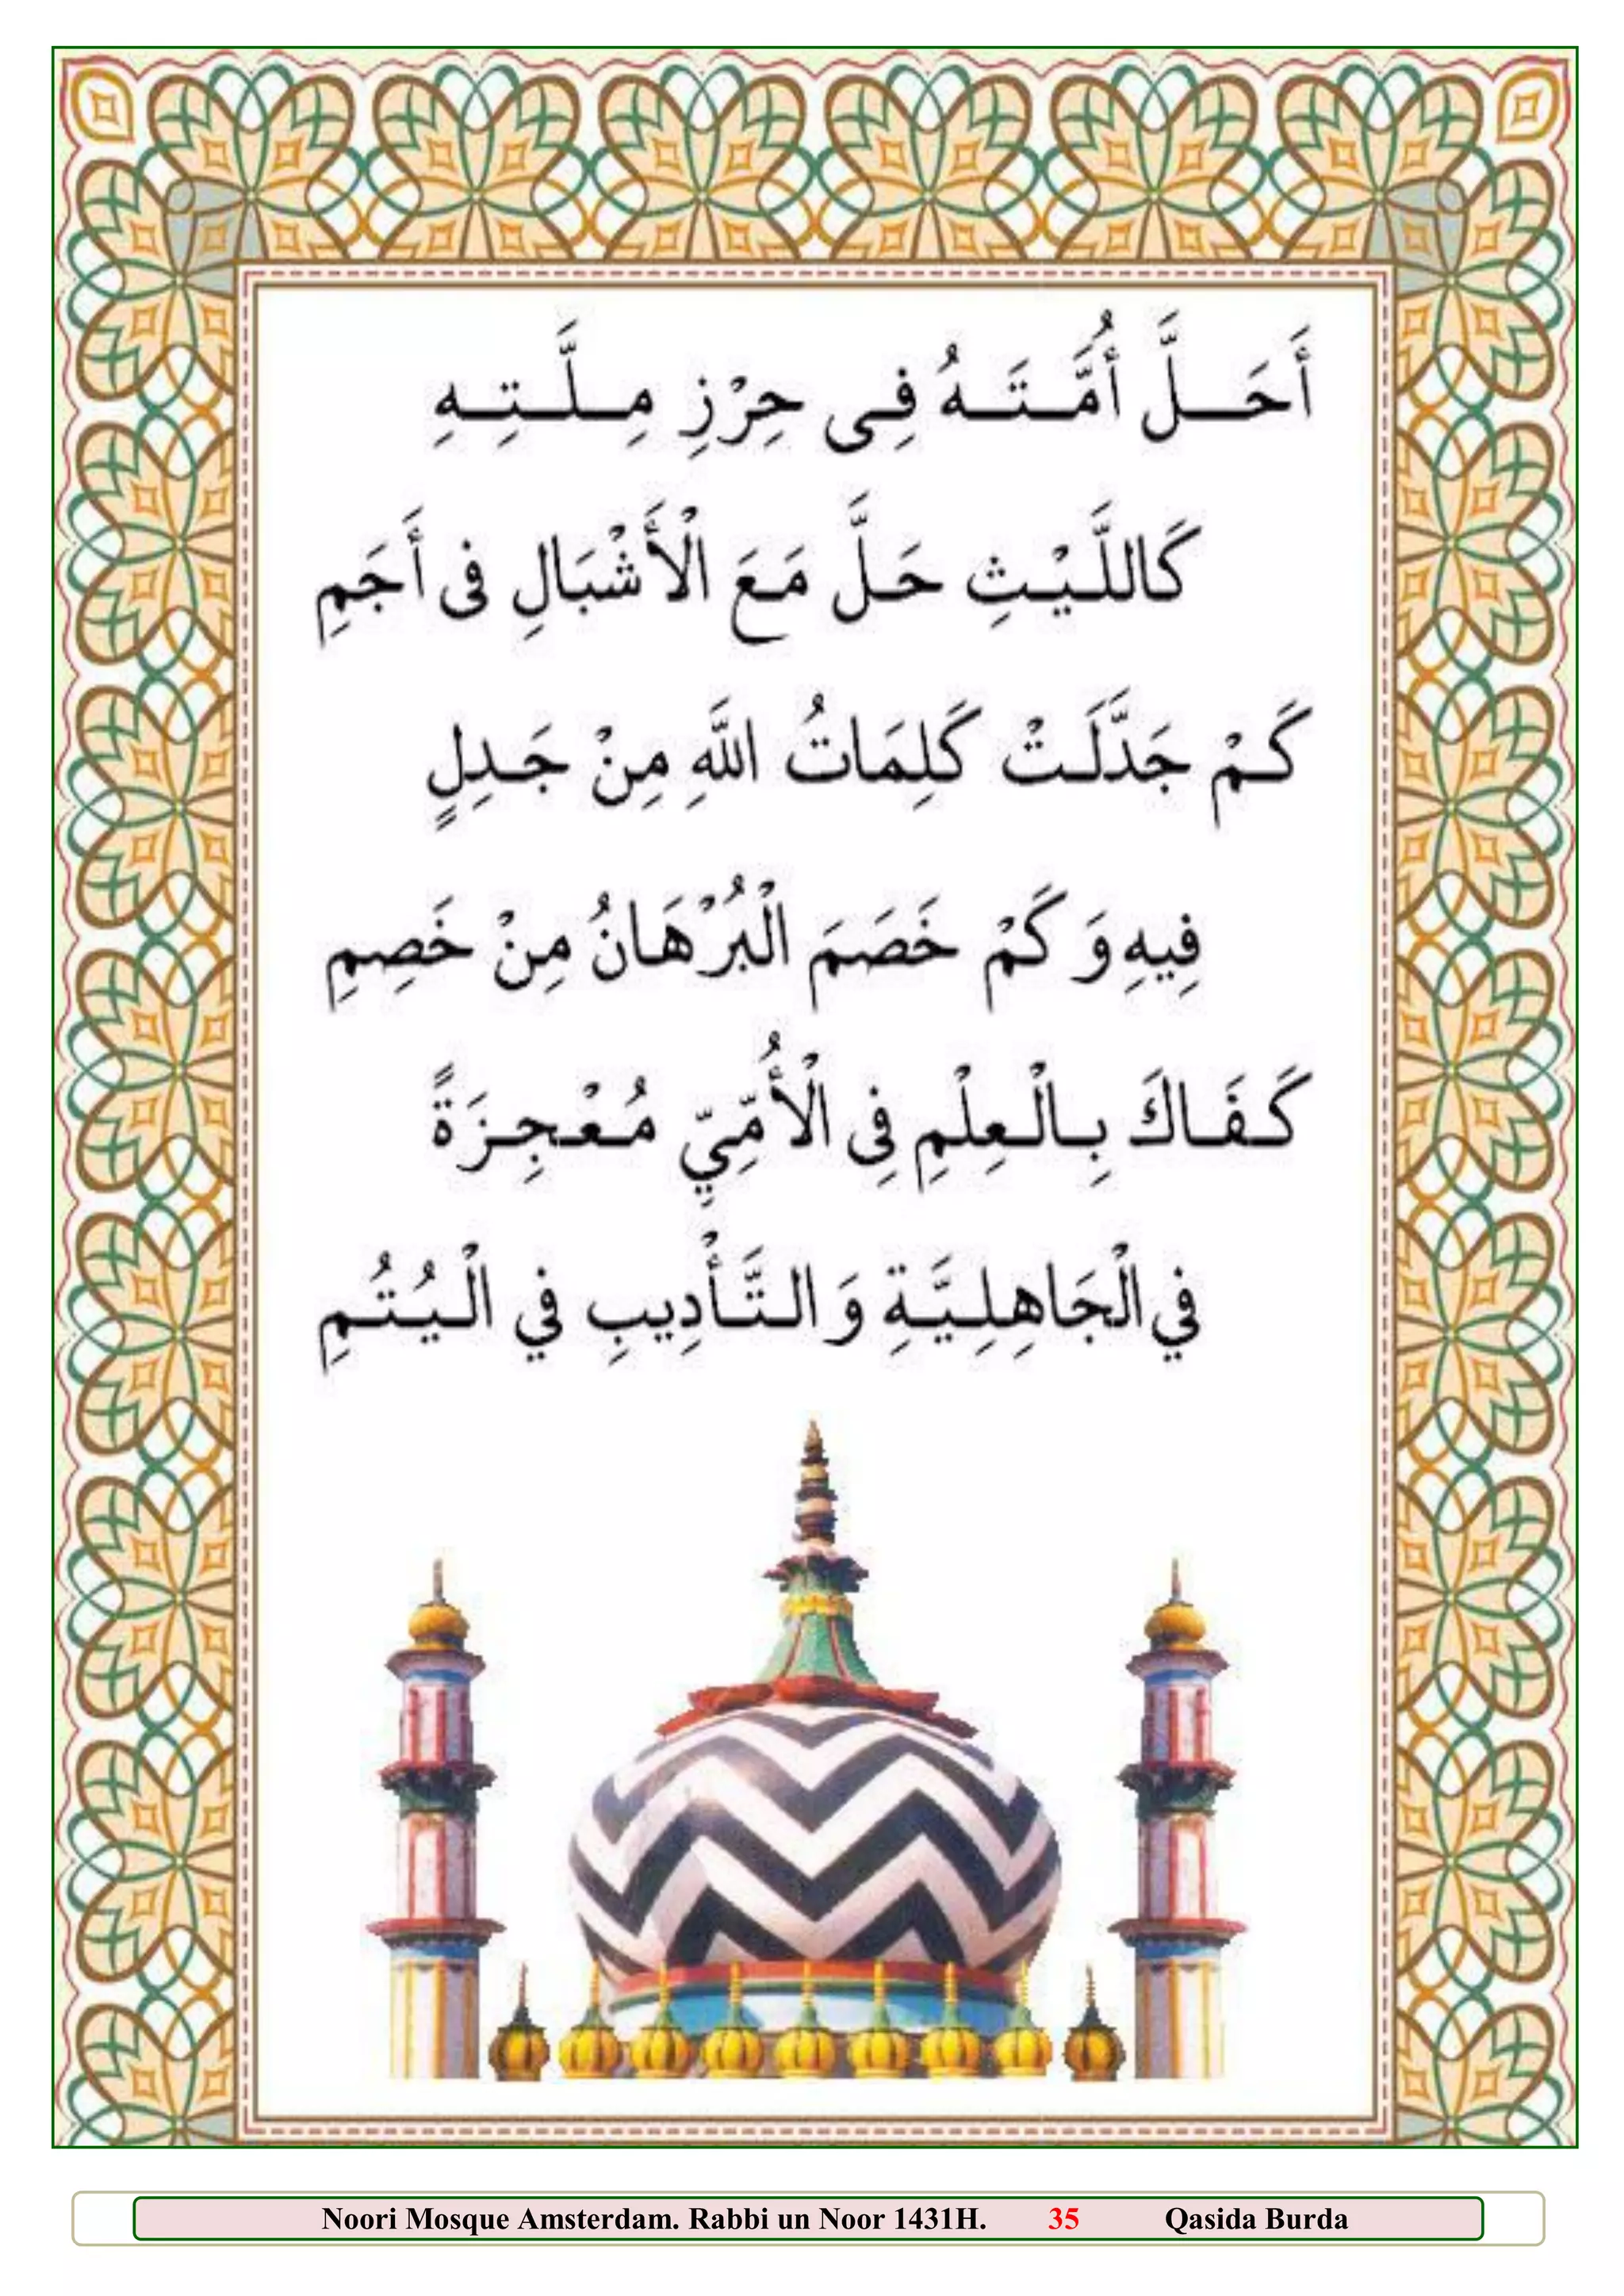 أَحَلَّ أُمَّتَهُ فِى حِرْزِ مِلَّتِهِ
كَاللَّيْثِ حَلَّ مَعَ الْأَشْبَالِ فى أَجَمِ
كَمْ جَدَّلَتْ كَلِمَاتُ اللَّهِ مِنْ جَدِلٍ
فِيهِ وَ كَمْ خَصَمَ الْبُرْهَانُ مِنْ خَصِمِ
كَفَاكَ بِالْعِلْمِ فِى الْأُمِّيِّ مُعْجِزَةً
في الْجَاهِلِيَّةِ وَ التَّأْدِيبِ في الْيُتُمِ
Noori Mosque Amsterdam. Rabbi un Noor 1431H. 35 Qasida Burda